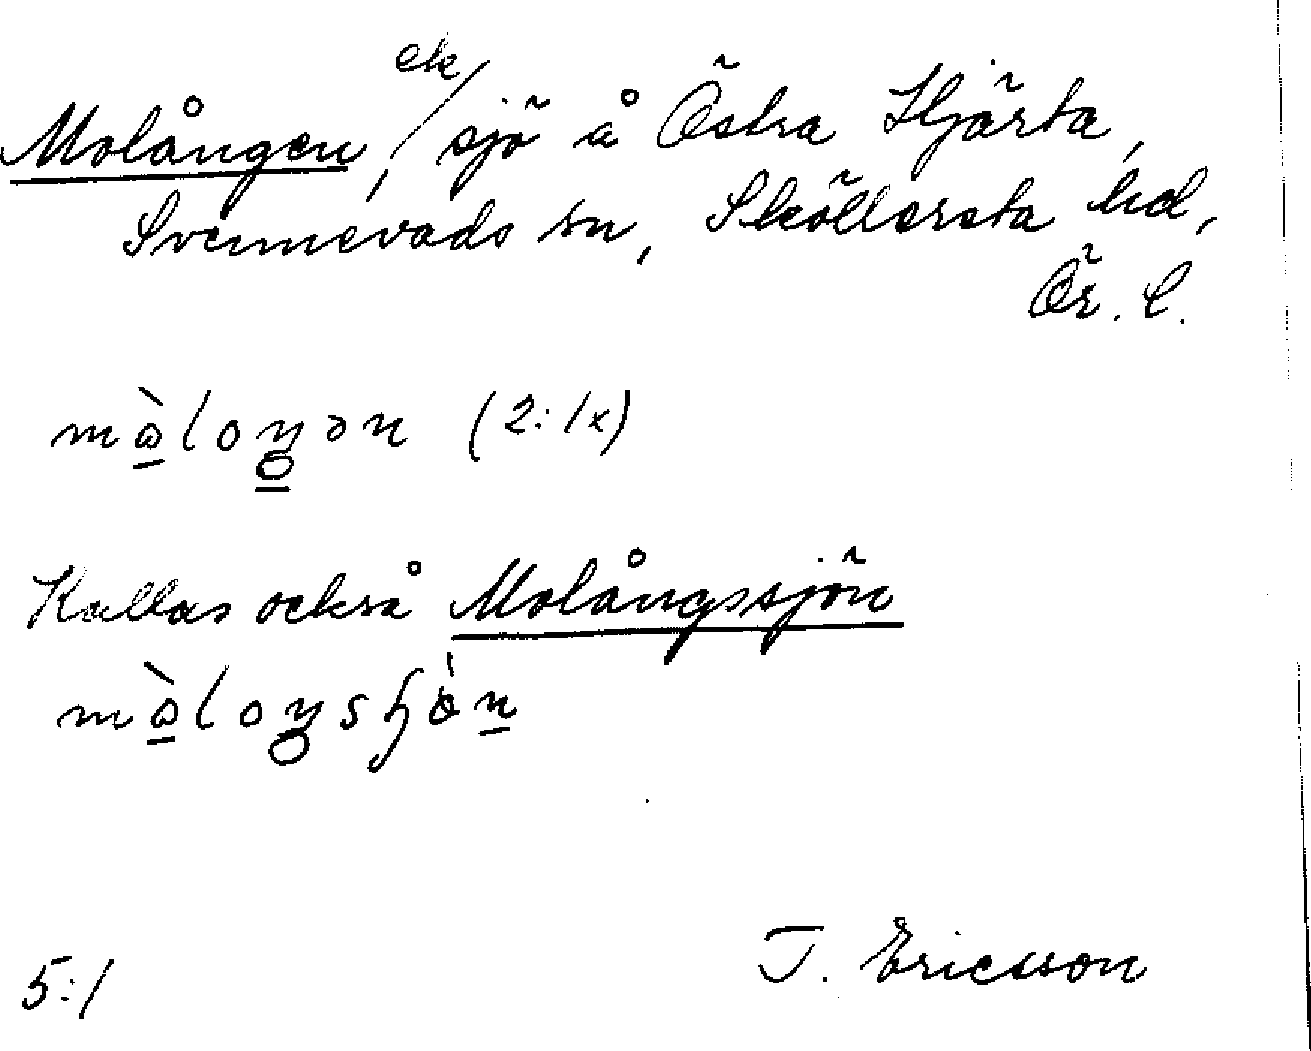 Molången, ek/ sjö å Östra Hjärta,
Svennevads sn, Sköllersta hd,
Ör. l.
(2: 1x)
Kallas också Molångssjön
T. Ericsson
5:1